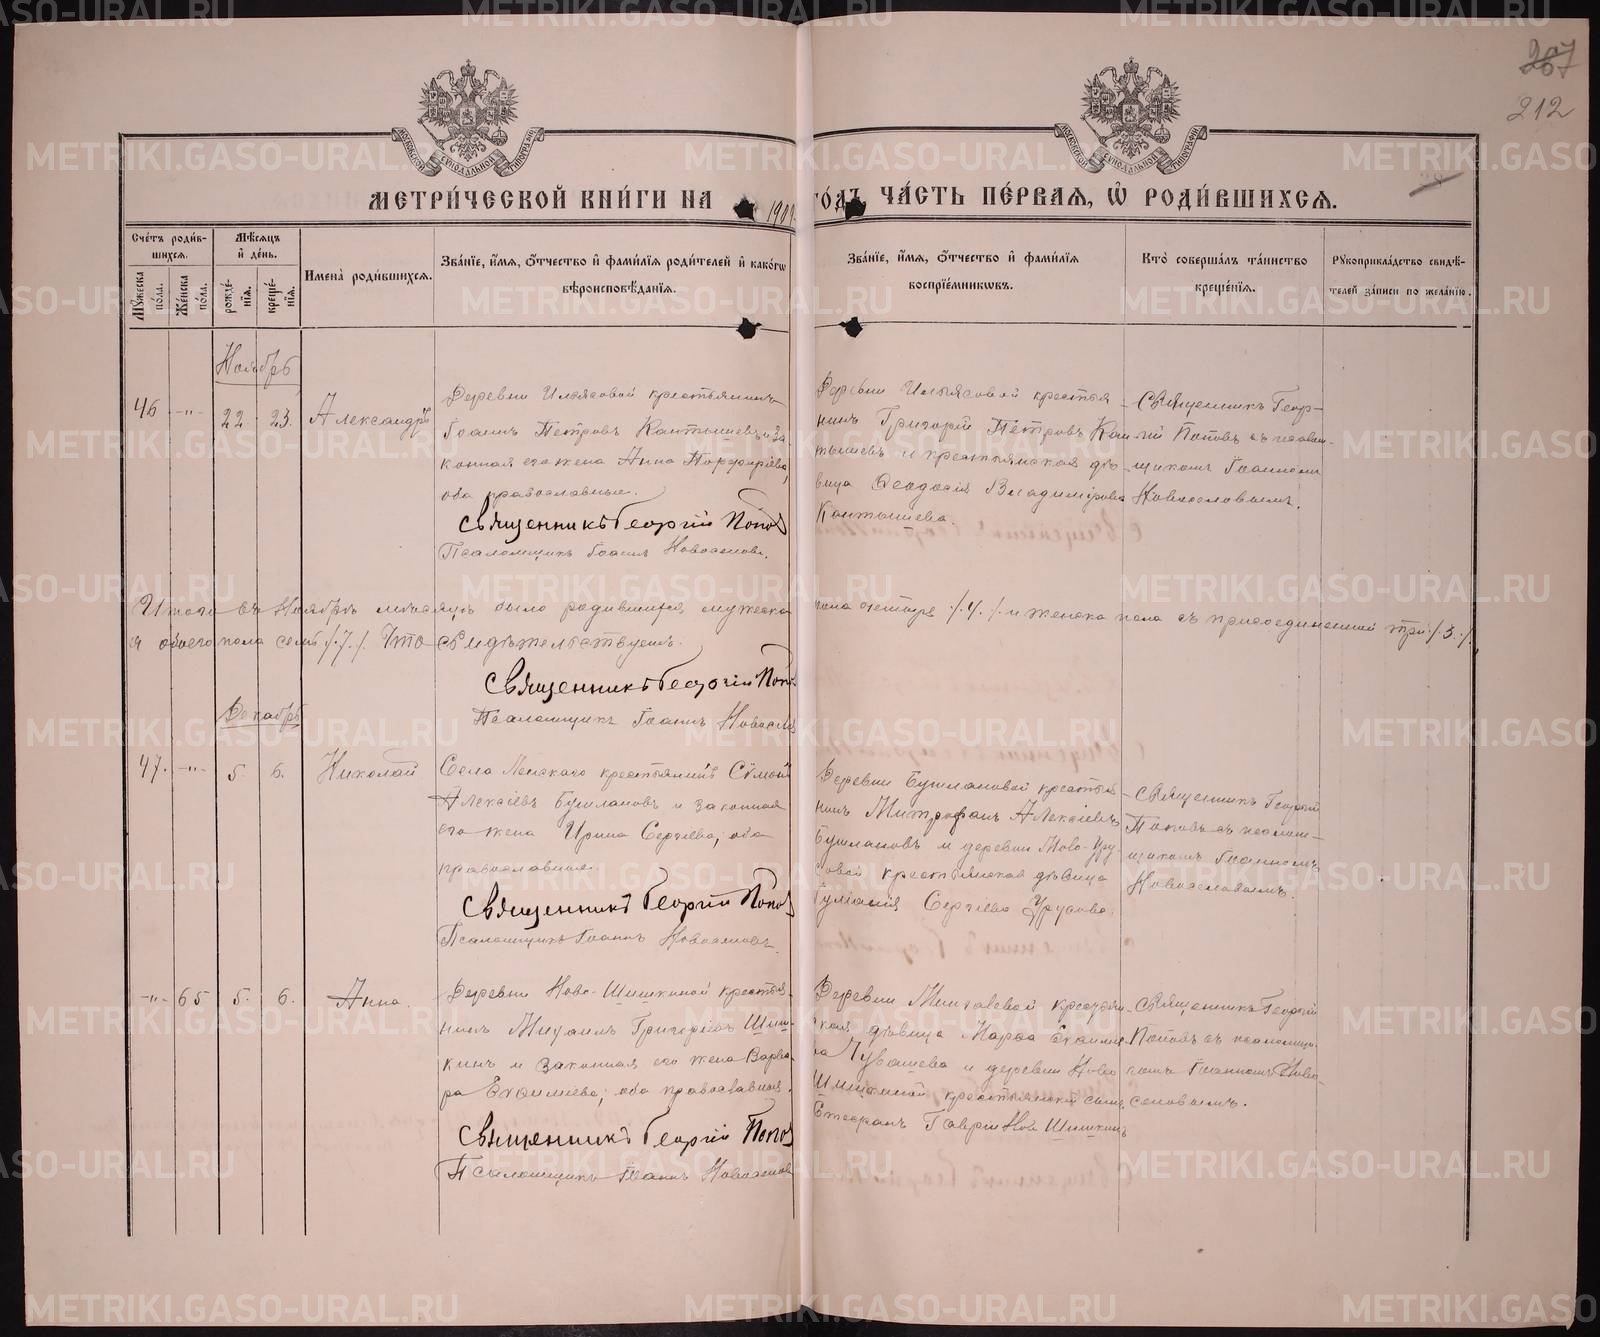 267
212
МЕТРИ́ЧЕСКОЙ КНИ́ГИ НА 1909 ГО́ДЪ ЧА́СТЬ ПЕ́РВАЯ, Ѡ҆ РОДИ́ВШИХСЯ.
Сче́тъ роди́в-
шихся.
Мѣ́сяцъ
и҆ де́нь.
Мꙋ́жеска по́ла.
Же́нска по́ла.
рожде́-
нїя.
креще́-
нїя.
И҆мена̀ роди́вшихся.
Зва́нїе, и҆́мя, ѻ҆́тчество и҆ фами́лїя роди́телей и҆ како́гѡ
вѣроисповѣ́данїя.
Зва́нїе, и҆́мя, ѻ҆́тчество и҆ фами́лїя
воспрїе́мникѡвъ.
Кто̀ соверша́лъ та́инство
креще́нїя.
Рꙋкоприкла́дство свидѣ́-
телей за́писи по жела́нїю.
Ноябрь
46 -"- 22 23. Александръ
Деревни Ильясовой крестьянинъ
Іоаннъ Петровъ Кантышевъ и за-
конная его жена Анна Порфиріева,
оба православные.
Священникъ Георгій Попов
Псаломщикъ Іоаннъ Новоселовъ.
Деревни Ильясовой крестья
нинъ Григорій Петровъ Кан
тышевъ и крестьянская дѣ-
вица Ѳеодосія Владимірова
Кантышева.
Священникъ Геор-
гій Поповъ съ псалом-
щикомъ Іоанномъ
Новоселовымъ.
Итого въ Ноябрѣ мѣсяцѣ было родившихся мужеска пола четыре /.4./ и женска пола съ присоединенной три /.3./,
а обоего пола семь /.7./. Что свидѣтельствуемъ.
Священникъ Георгій Попо
Псаломщикъ Іоаннъ Новосел
Декабрь
47. -"- 5. 6. Николай
Села крестьянинъ Сѵмеонъ
Алексіевъ Бушлановъ и законная
его жена Ирина Сергіева, оба
православные.
Священникъ Георгій Попов
Псаломщикъ Іоаннъ Новоселовъ
Деревни Бушлановой крестья
нинъ Митрофанъ Алексіевъ
Бушлановъ и деревни Ново-Уру-
совой крестьянская дѣвица
Іуліанія Сергіева Урусова.
Священникъ Георгій
Поповъ съ псалом-
щикомъ Іоанномъ
Новоселовымъ.
-"- 65 5. 6. Анна.
Деревни Ново-Шишкиной крестья-
нинъ Михаилъ Григоріевъ Шиш-
кинъ и законная его жена Варва-
ра Евѳиміева; оба православные.
Священникъ Георгій Попов
Псаломщикъ Іоаннъ Новоселов
Деревни крестьян-
ская дѣвица Марѳа Евѳиміе
ва Чувашева и деревни Ново
Шишкиной крестьянскій сынъ
Стефанъ Шишкинъ
Священникъ Георгій
Поповъ съ псаломщи-
комъ Іоанномъ Ново-
селовымъ.
METRIKI.GASO-URAL.RU